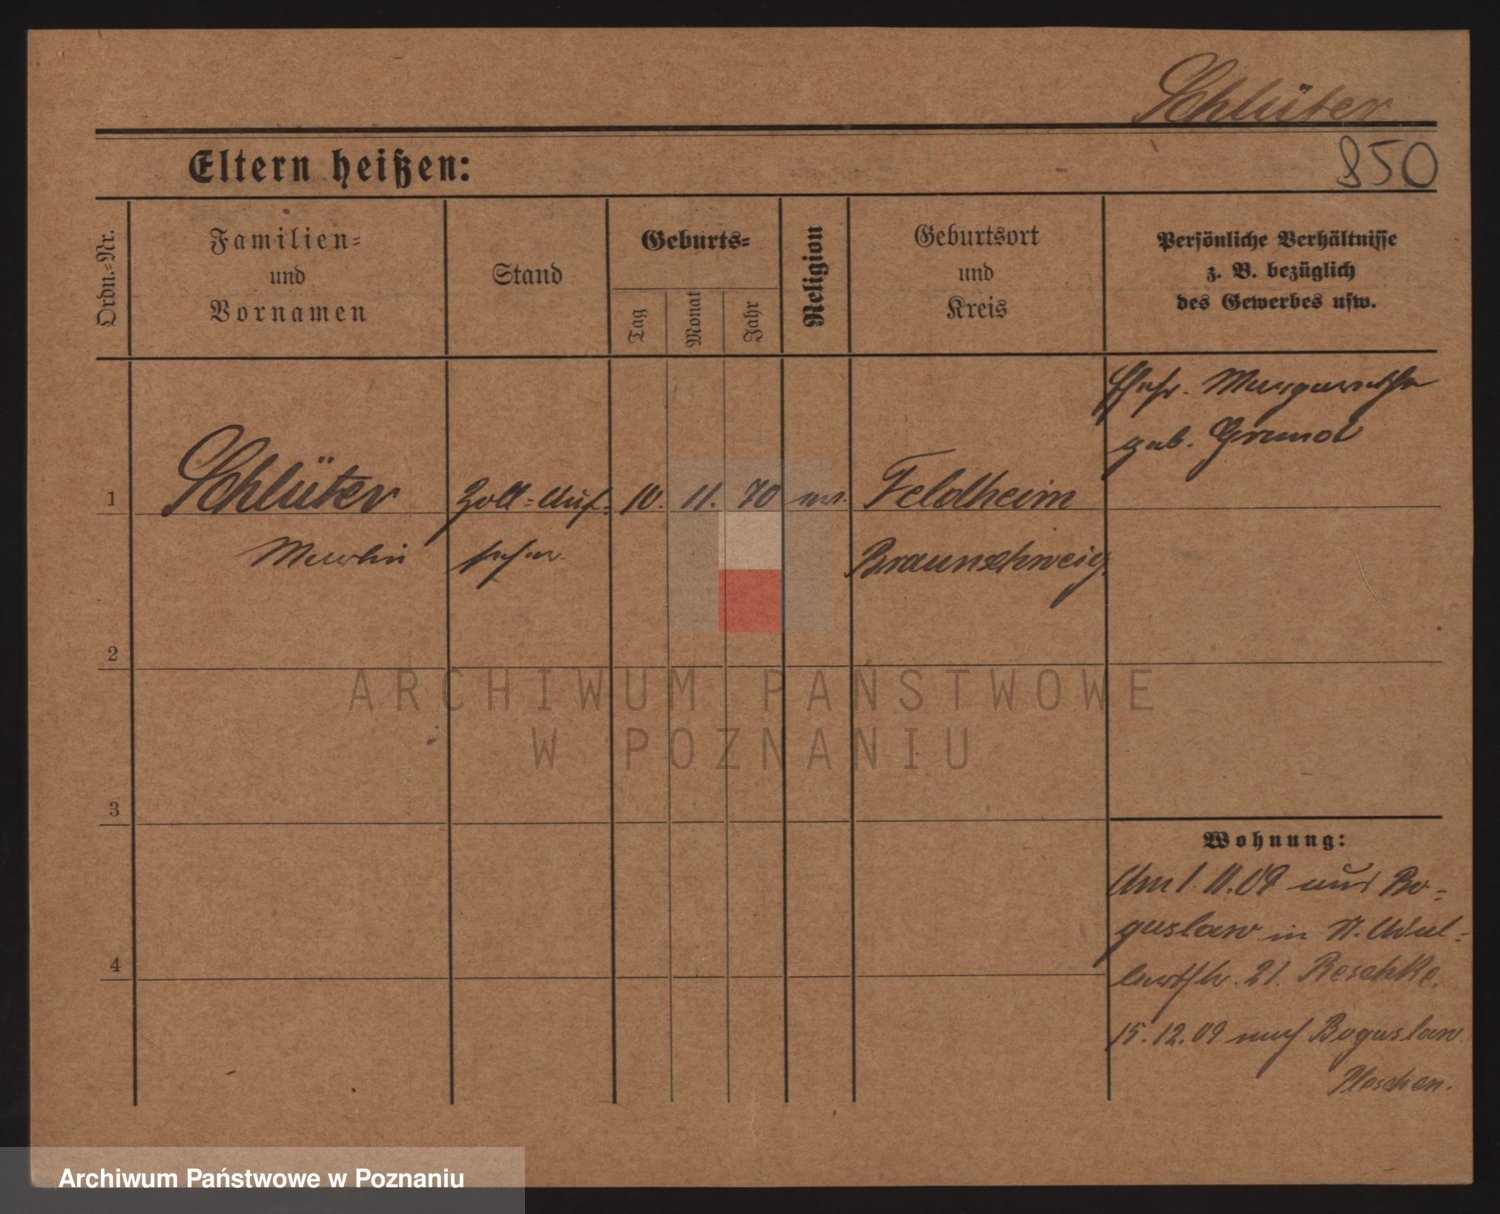 Schlüter
850
Eltern heißen:
Ordn.-Nr.
Familien-
und
Vornamen
Stand
Geburts-
Tag
Monat
Jahr
Religion
Geburtsort
und
Kreis
Persönliche Verhältnisse
z. B. bezüglich
des Gewerbes usw.
Ehefr. Margarethe
geb. Grund
1 Schlüter Zoll-Auf- 10. 11. 70 ev. Feldheim
Martin seher Braunschweig
2
3
4
Wohnung:
Am 1.11.09 aus Bo-
guslaw in N.
21. Reschke.
15.12.09 nach Boguslaw
Pleschen.
ARCHIWUM PAŃSTWOWE
W POZNANIU
Archiwum Państwowe w Poznaniu